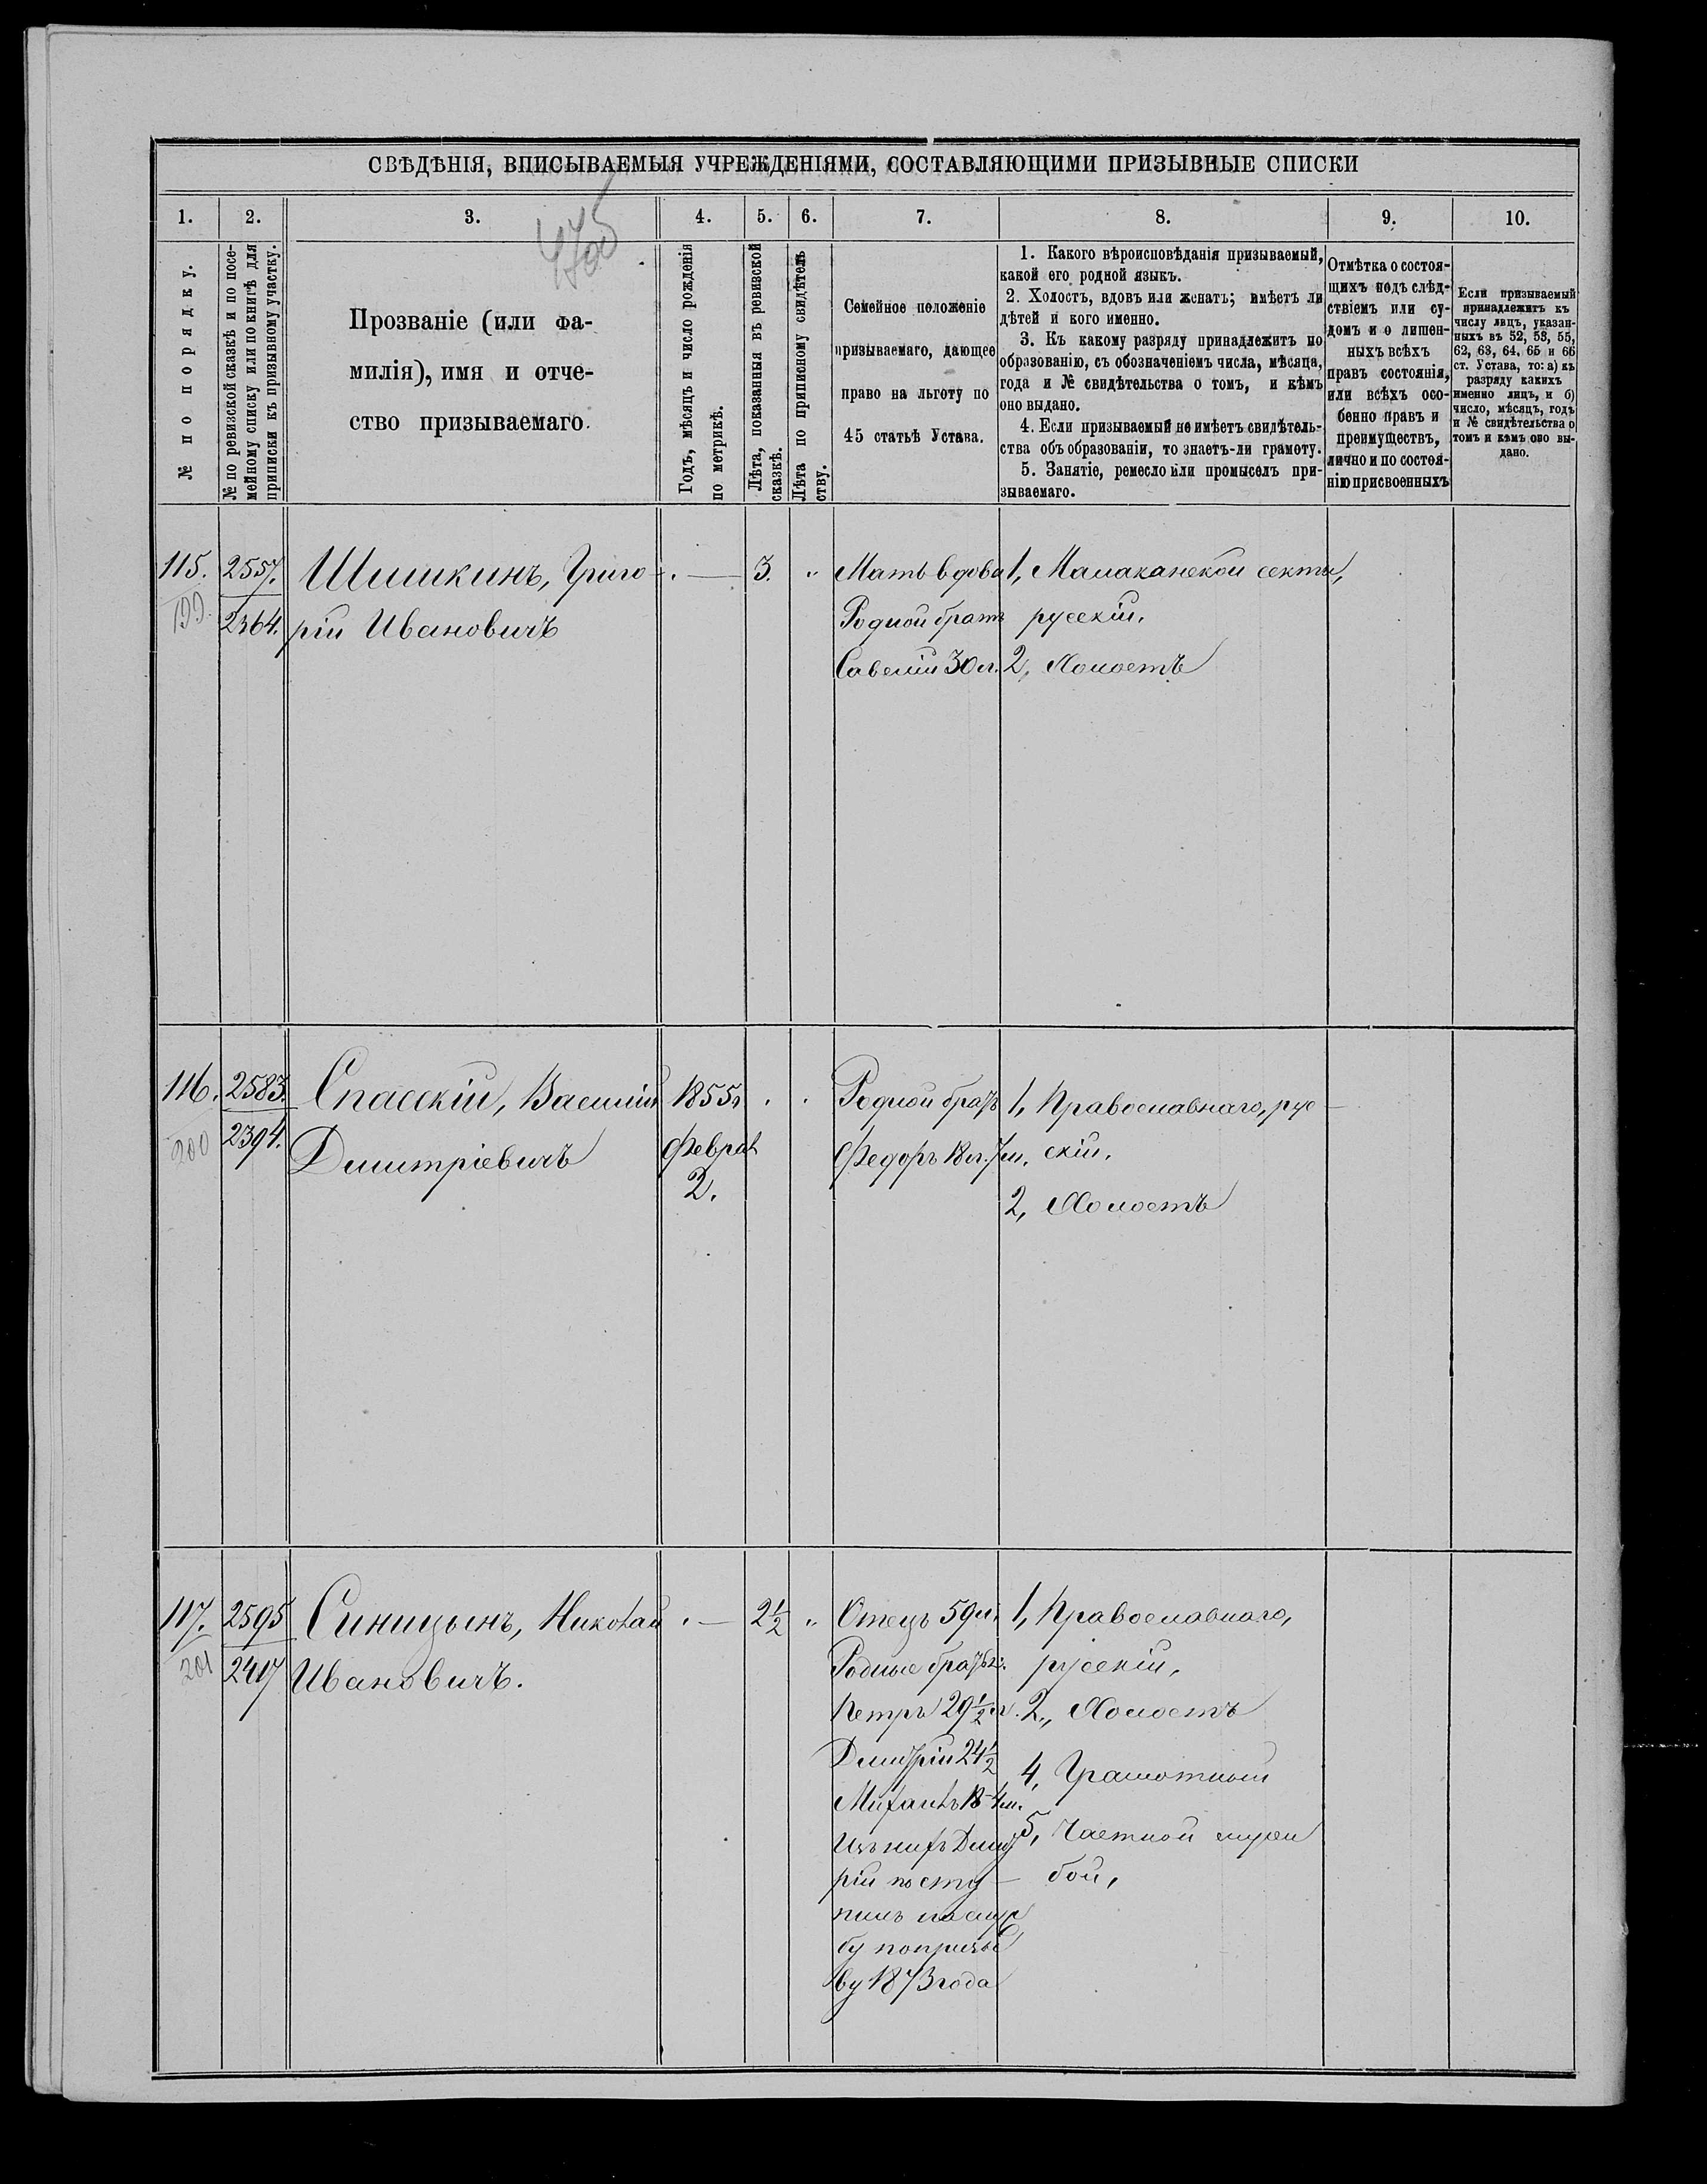 СВѢДѢНІЯ, ВПИСЫВАЕМЫЯ УЧРЕЖДЕНІЯМИ, СОСТАВЛЯЮЩИМИ ПРИЗЫВНЫЕ СПИСКИ
1.
2.
3.
4.
5.
6.
7.
8.
9.
10.
№ по порядку.
№ по ревизской сказкѣ и по посе-
мейному списку или по книгѣ для
приписки къ призывному участку.
Прозваніе (или фа-
милія), имя и отче-
ство призываемаго.
Годъ, мѣсяцъ и число рожденія
по метрикѣ.
Лѣта, показанныя въ ревизской
сказкѣ.
Лѣта по приписному свидѣтель
ству.
Семейное положеніе
призываемаго, дающее
право на льготу по
45 статьѣ Устава.
1. Какого вѣроисповѣданія призываемый,
какой его родной языкъ.
2. Холостъ, вдовъ или женатъ; имѣетъ ли
дѣтей и кого именно.
3. Къ какому разряду принадлежитъ по
образованію, съ обозначеніемъ числа, мѣсяца,
года и № свидѣтельства о томъ, и кѣмъ
оно выдано.
4. Если призываемый не имѣетъ свидѣтель-
ства объ образованіи, то знаетъ-ли грамоту.
5. Занятіе, ремесло или промыселъ при-
зываемаго.
Отмѣтка о состоя-
щихъ подъ слѣд-
ствіемъ или су-
домъ и о лишен-
ныхъ всѣхъ
правъ состоянія,
или всѣхъ осо-
бенно правъ и
преимуществъ,
лично и по состоя-
нію присвоенныхъ
Если призываемый
принадлежитъ къ
числу лицъ, указан-
ныхъ въ 52, 53, 55,
62, 63, 64, 65 и 66
ст. Устава, то: а) къ
разряду какихъ
именно лицъ, и б)
число, мѣсяцъ, годъ
и № свидѣтельства о
томъ и кѣмъ оно вы-
дано.
115.
199.
2557.
2364.
Шишкинъ, Григо-
рій Ивановичъ
. —
3.
"
Мать вдова
Родной братъ
Савелій 30 л.
1, Малаканской секты,
русскій.
2, Холостъ
116.
200
2583.
2394.
Спасскій, Василій
Димитріевичъ
1855 г
Феврал
2.
.
.
Родной братъ
Федоръ 18 л. 7 м.
1, Православнаго, рус-
скій.
2, Холостъ
117.
201
2595
2417
Синицынъ, Николай
Ивановичъ.
. —
2½
"
Отецъ 59 л.
Родные братья:
Петръ 29½ л.
Димитрій 24½
Михаилъ 18-4 м.
Изъ нихъ Димит
рій посту-
пилъ на служ
бу по призы
ву 1873 года
1, Православнаго,
русскій,
2,, Холостъ
4, Грамотный
5, Частной служ
бой,